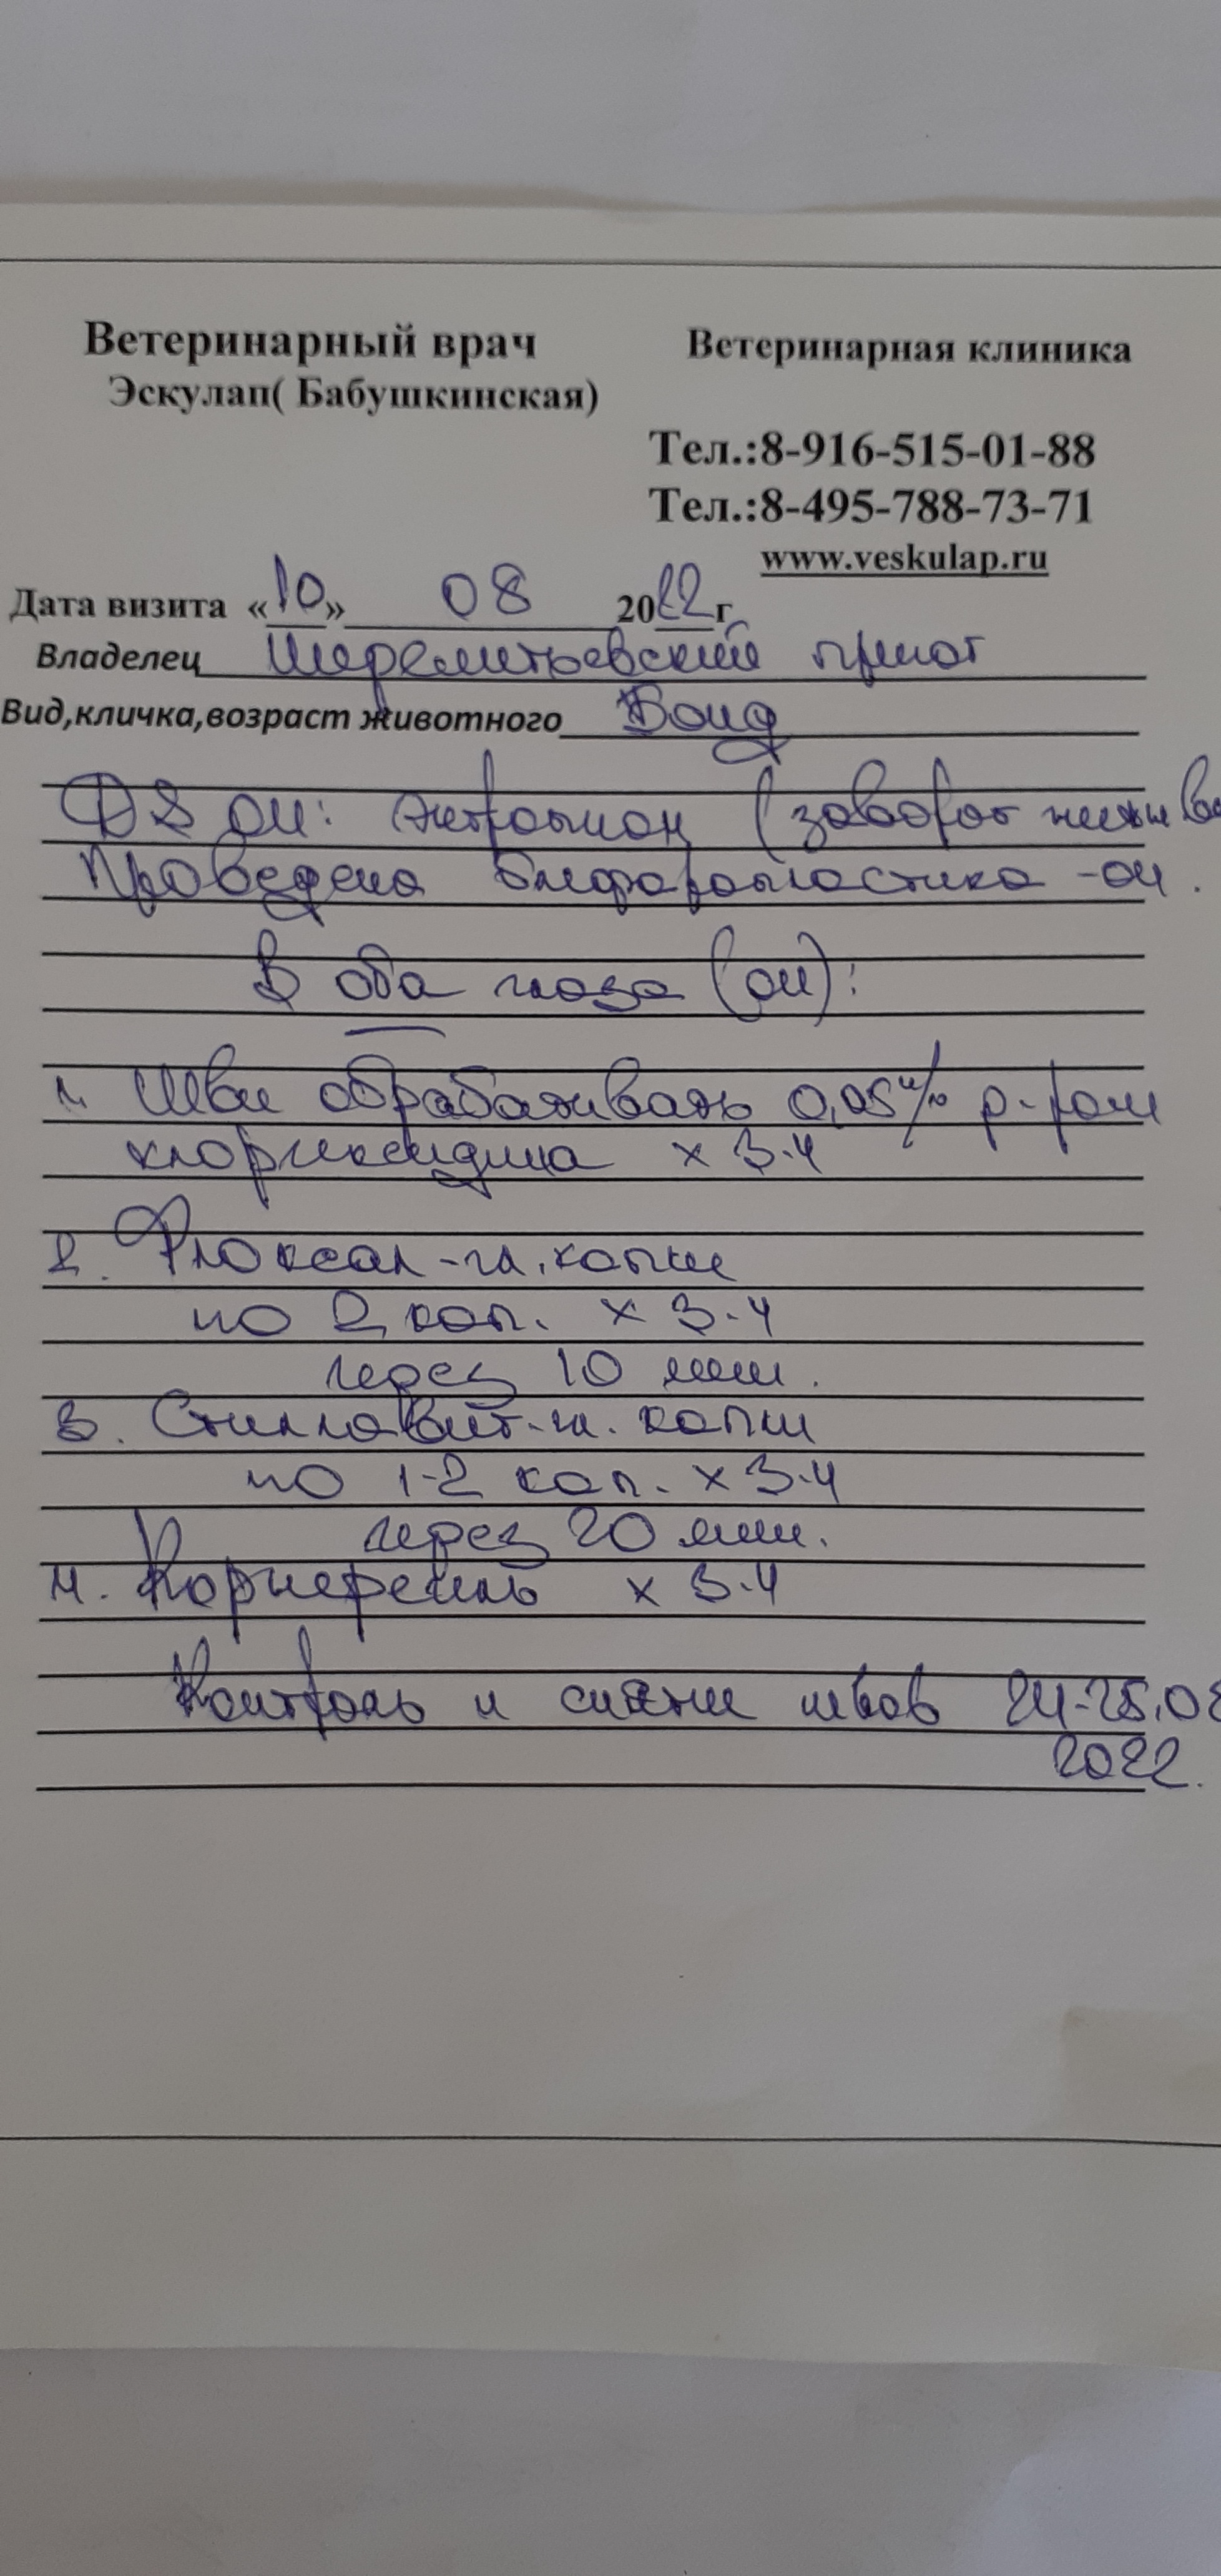 Ветеринарный врач Ветеринарная клиника
Эскулап( Бабушкинская)
Тел.:8-916-515-01-88
Тел.:8-495-788-73-71
www.veskulap.ru
Дата визита «10» 08 2022г
Владелец Шереметьевский приют
Вид,кличка,возраст животного
DS ou: энтропион (заворот
Проведена блефаропластика -ou.
В оба глаза (ou):
1. Швы обрабатывать 0,05% р-ром
хлоргексидина x 3-4
2. Флоксал-гл.капли
по 2 кап. x 3-4
через 10 мин.
3. Стиллавит-гл. капли
по 1-2 кап. x 3-4
через 20 мин.
4. Корнерегель x 3-4
Контроль и снятие швов 24-25.08
2022.